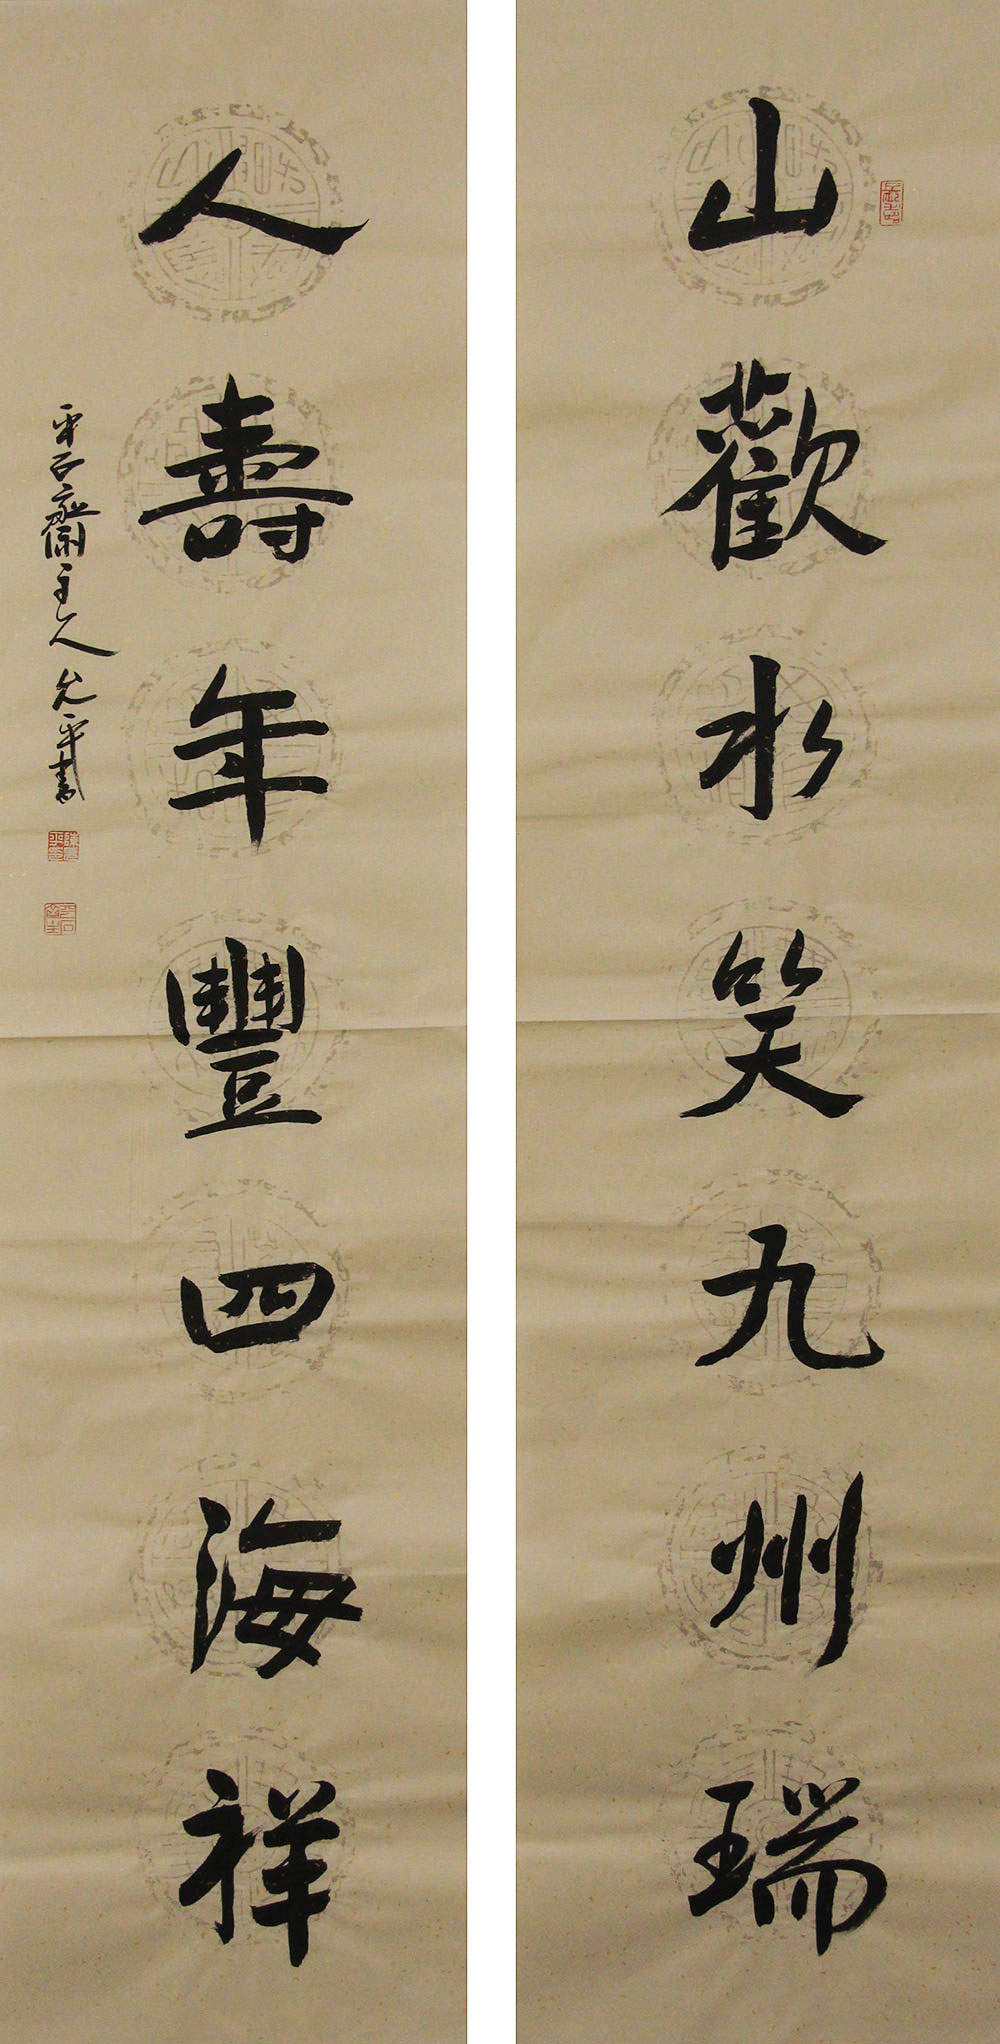 山歡水笑九州瑞
人壽年豐四海祥
平石齋主人允平書